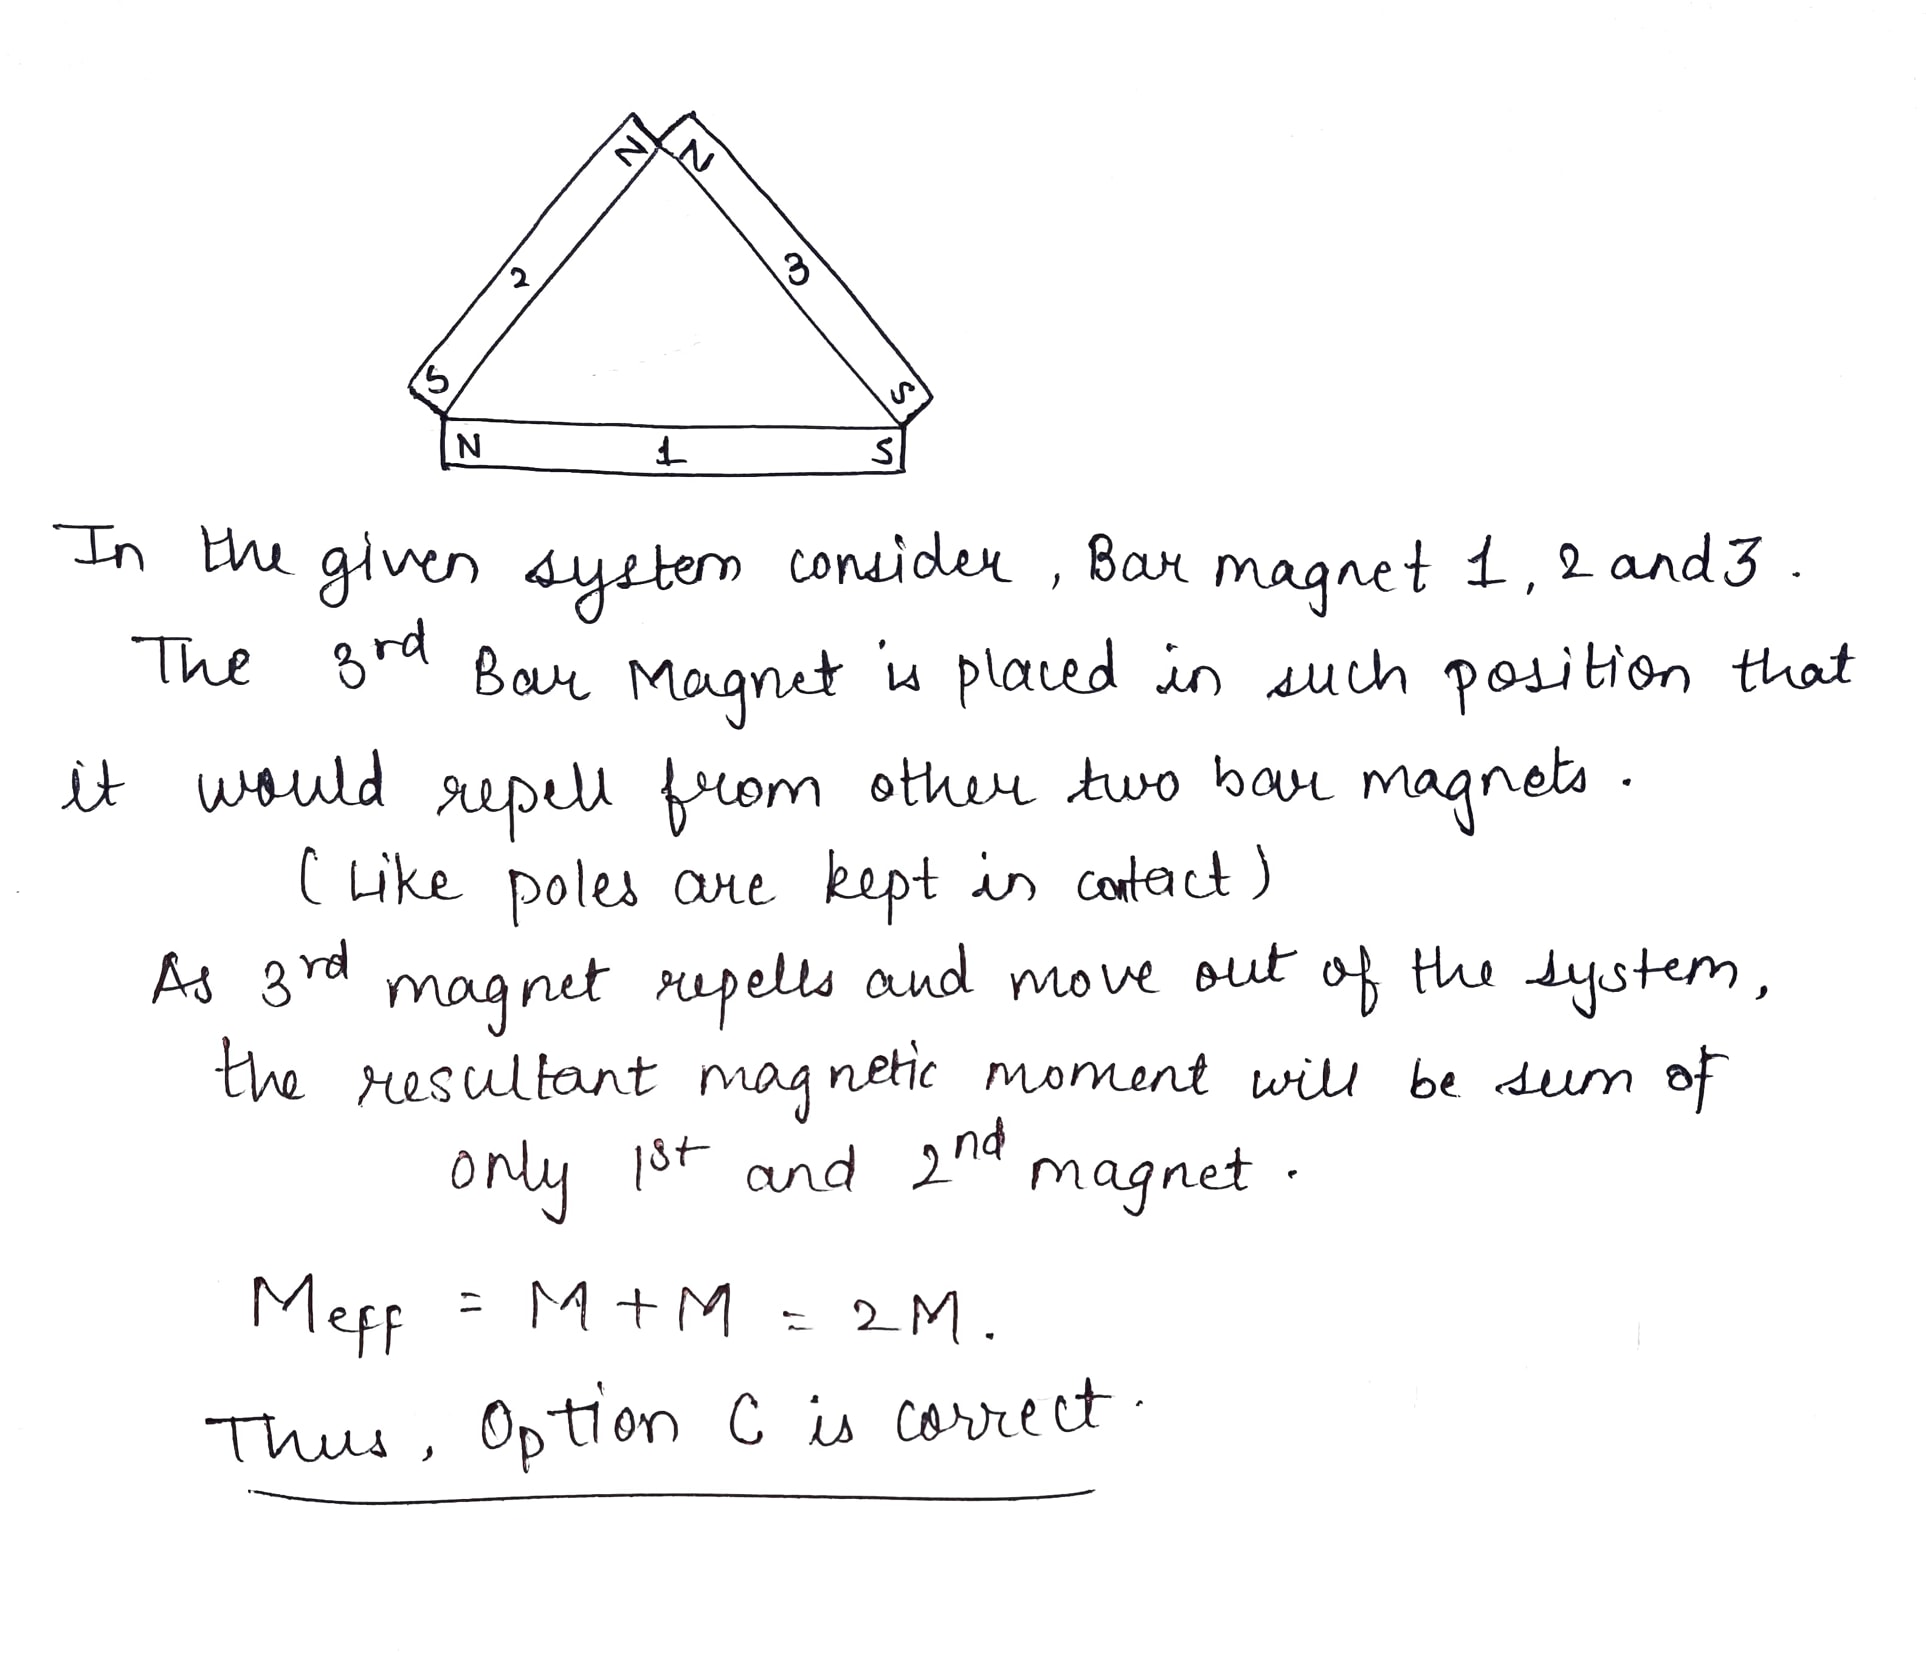 N N
2 3
S S
N 1 S
In the given system consider, Bar magnet 1, 2 and 3.
The 3rd Bar Magnet is placed in such position that
it would repell from other two bar magnets.
(Like poles are kept in contact)
As 3rd magnet repells and move out of the system,
the resultant magnetic moment will be sum of
only 1st and 2nd magnet.
Meff = M + M = 2M.
Thus, Option C is correct.